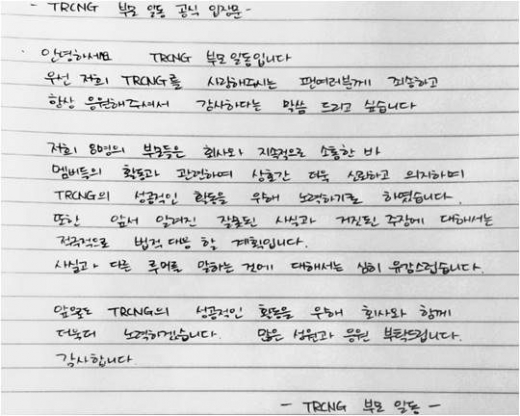 - TRCNG 부모 일동 공식 입장문 -
안녕하세요 TRCNG 부모 일동입니다
우선 저희 TRCNG를 사랑해주시는 팬여러분께 죄송하고
항상 응원해주셔서 감사하다는 말씀 드리고 싶습니다
저희 8명의 부모들은 회사와 지속적으로 소통한 바
멤버들의 활동과 관련하여 상호간 더욱 신뢰하고 의지하며
TRCNG의 성공적인 활동을 위해 노력하기로 하였습니다.
또한 앞서 알려진 잘못된 사실과 거짓된 주장에 대해서는
적극적으로 법적 대응 할 계획입니다.
사실과 다른 루머를 말하는 것에 대해서는 심히 유감스럽습니다.
앞으로도 TRCNG의 성공적인 활동을 위해 회사와 함께
더욱더 노력하겠습니다. 많은 성원과 응원 부탁드립니다.
감사합니다
- TRCNG 부모 일동 -